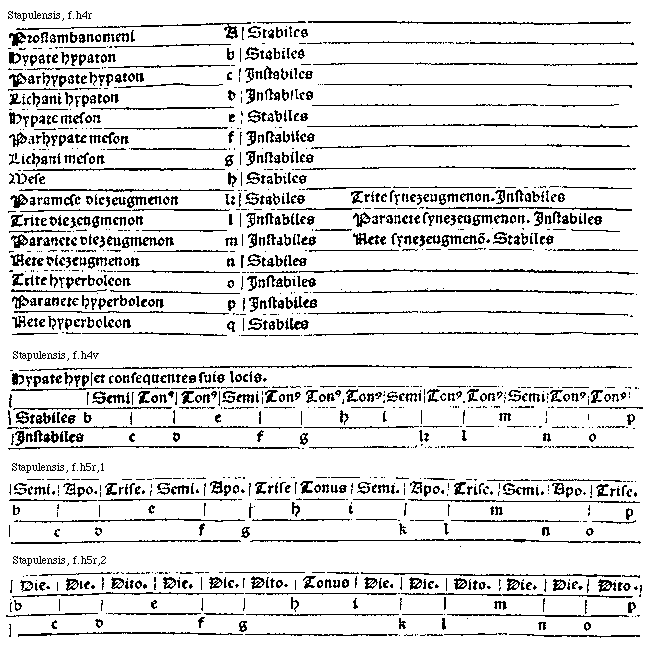 Stapulensis, f.h4r
Proslambanomeni A Stabiles
Hypate hypaton b Stabiles
Parhypate hypaton c Instabiles
Lichani hypaton d Instabiles
Hypate meson e Stabiles
Parhypate meson f Instabiles
Lichani meson g Instabiles
Mese h Stabiles
Paramese diezeugmenon k Stabiles Trite synezeugmenon. Instabiles
Trite diezeugmenon l Instabiles Paranete synezeugmenon. Instabiles
Paranete diezeugmenon m Instabiles Nete synezeugmenō. Stabiles
Nete diezeugmenon n Stabiles
Trite hyperboleon o Instabiles
Paranete hyperboleon p Instabiles
Nete hyperboleon q Stabiles
Stapulensis, f.h4v
Hypate hyp et consequentes suis locis.
Semi Tonꝰ Tonꝰ Semi Tonꝰ Tonꝰ Tonꝰ Semi Tonꝰ Tonꝰ Semi Tonꝰ Tonꝰ
Stabiles b e h i m p
Instabiles c d f g k l n o
Stapulensis, f.h5r,1
Semi. Apo. Trise. Semi. Apo. Trise Tonus Semi. Apo. Trise. Semi. Apo. Trise.
b e h i m p
c d f g k l n o
Stapulensis, f.h5r,2
Die. Die. Dito. Die. Die. Dito. Tonus Die. Die. Dito. Die. Die. Dito.
b e h i m p
c d f g k l n o